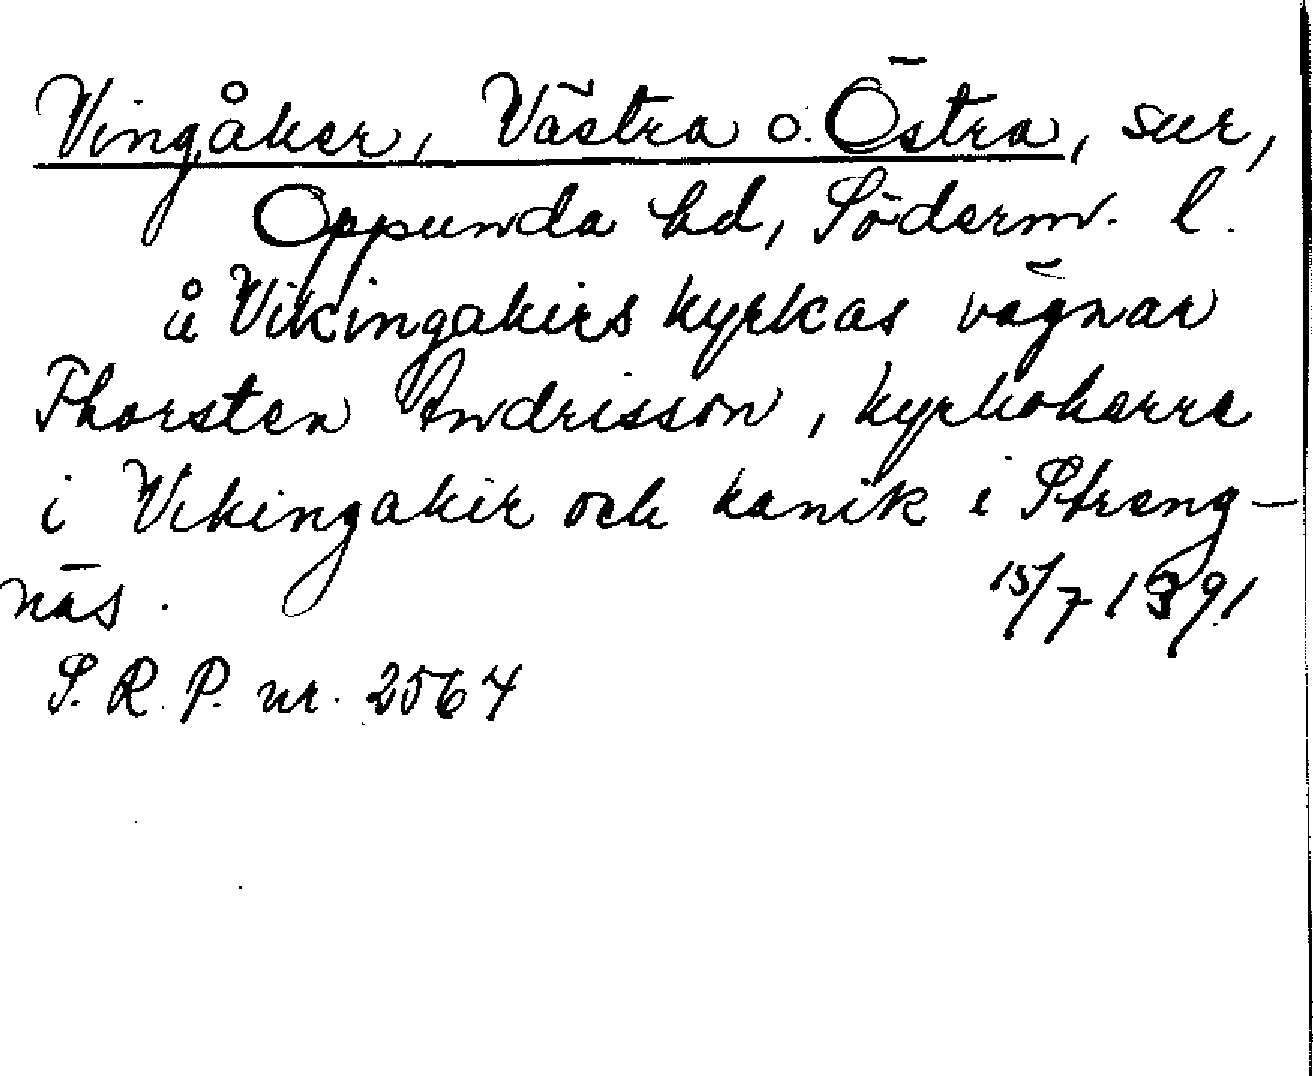 Vingåker, Västra o. Östra, snr,
Oppunda hd, Söderm. l.
å Vikingakirs kyrkas vägnar
Thorsten Andrisson, kyrkoherre
i Vikingakir och kanik i Streng-
näs. 15/7 1391
S. R. P. nr. 2564